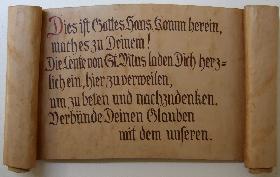 Dies ist Gottes Haus. Komm herein,
mach es zu Deinem!
Die Leute von St. Vitus laden Dich herz-
lich ein, hier zu verweilen,
um zu beten und nachzudenken.
Verbünde Deinen Glauben
mit dem unseren.